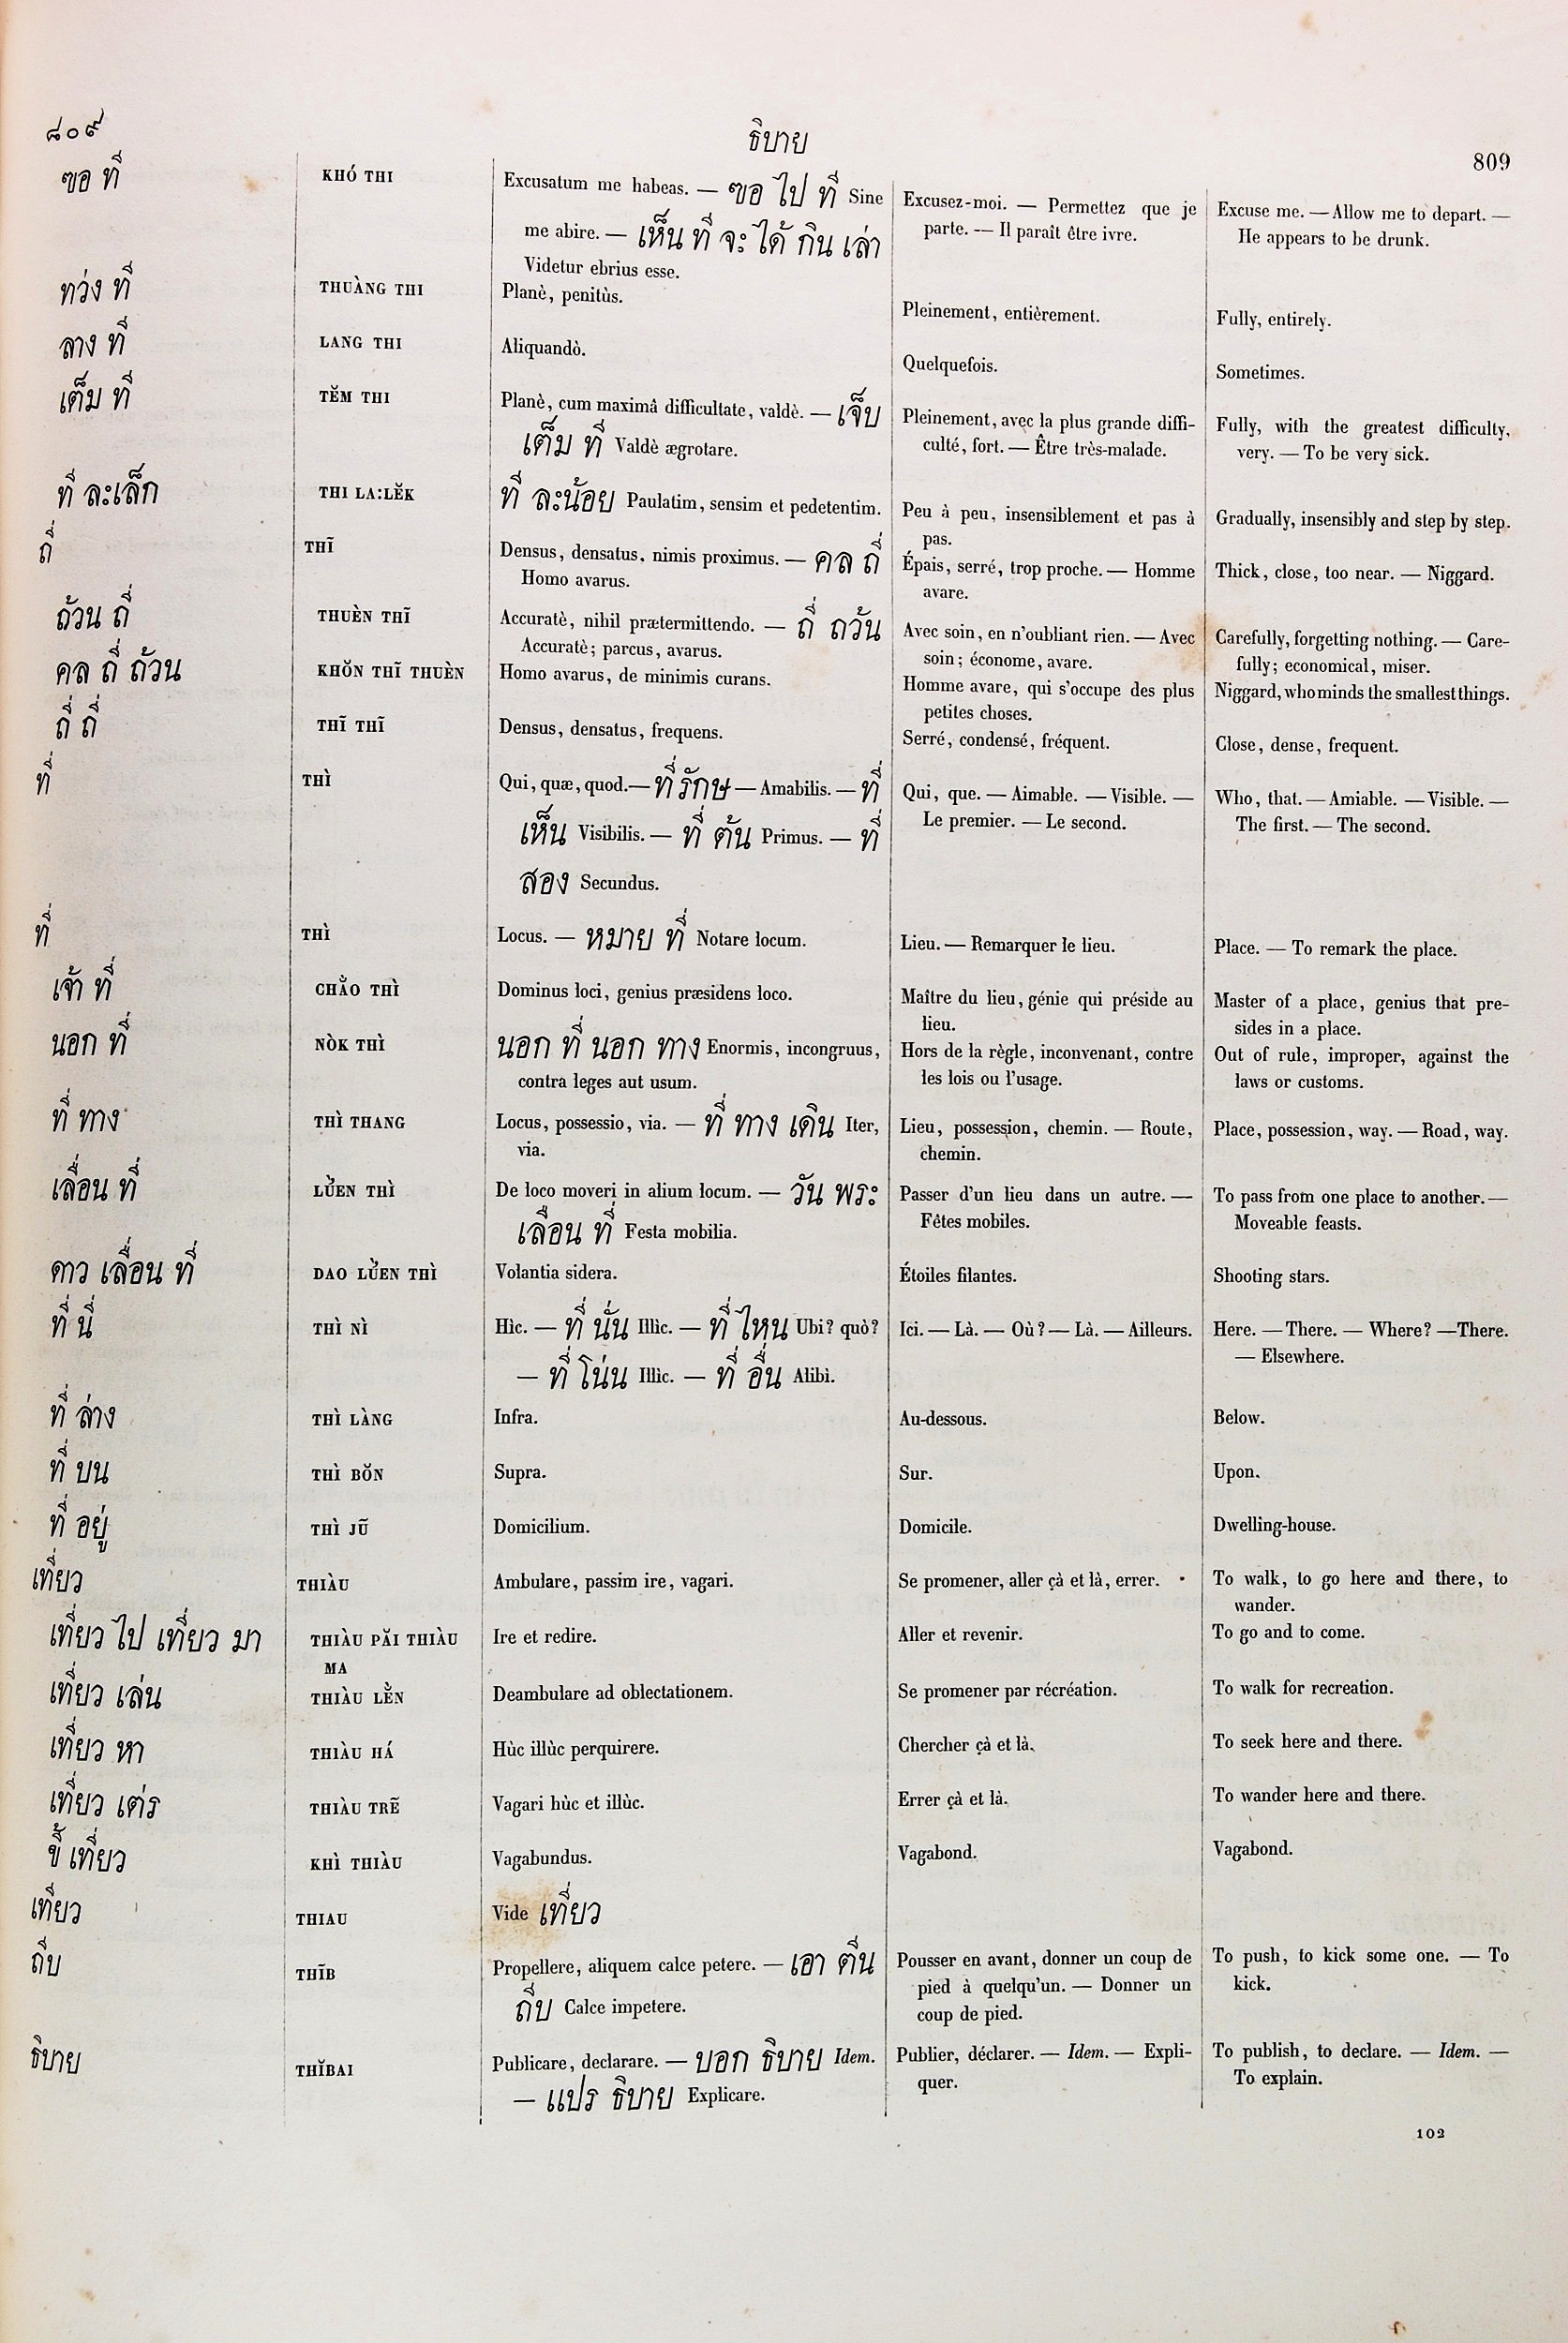 ๘๐๙
ธิบาย
809
ขอ ที
KHÓ THI
Excusatum me habeas. — ขอ ไป ที Sine
me abire. — เห็น ที จะ ได้ กิน เล่า
Videtur ebrius esse.
Excusez-moi. — Permettez que je
parte. — Il paraît être ivre.
Excuse me. — Allow me to depart. —
He appears to be drunk.
ทว่ง ที
THUÀNG THI
Planè, penitùs.
Pleinement, entièrement.
Fully, entirely.
ลาง ที
LANG THI
Aliquandò.
Quelquefois.
Sometimes.
เต็ม ที
TĔM THI
Planè, cum maximâ difficultate, valdè. — เจ็บ
เต็ม ที Valdè ægrotare.
Pleinement, avec la plus grande diffi-
culté, fort. — Être très-malade.
Fully, with the greatest difficulty,
very. — To be very sick.
ที ละเล็ก
THI LA:LĔK
ที ละน้อย Paulatim, sensim et pedetentim.
Peu à peu, insensiblement et pas à
pas.
Gradually, insensibly and step by step.
ถี่
THĨ
Densus, densatus, nimis proximus. — คล ถี่
Homo avarus.
Épais, serré, trop proche. — Homme
avare.
Thick, close, too near. — Niggard.
ถ้วน ถี่
THUÈN THĨ
Accuratè, nihil prætermittendo. — ถี่ ถวัน
Accuratè; parcus, avarus.
Avec soin, en n'oubliant rien. — Avec
soin; économe, avare.
Carefully, forgetting nothing. — Care-
fully; economical, miser.
คล ถี่ ถ้วน
KHŎN THĨ THUÈN
Homo avarus, de minimis curans.
Homme avare, qui s'occupe des plus
petites choses.
Niggard, who minds the smallest things.
ถี่ ถี่
THĨ THĨ
Densus, densatus, frequens.
Serré, condensé, fréquent.
Close, dense, frequent.
ที่
THÌ
Qui, quæ, quod. — ที่ รักษ — Amabilis. — ที่
เห็น Visibilis. — ที่ ต้น Primus. — ที่
สอง Secundus.
Qui, que. — Aimable. — Visible. —
Le premier. — Le second.
Who, that. — Amiable. — Visible. —
The first. — The second.
ที่
THÌ
Locus. — หมาย ที่ Notare locum.
Lieu. — Remarquer le lieu.
Place. — To remark the place.
เจ้า ที่
CHẢO THÌ
Dominus loci, genius præsidens loco.
Maître du lieu, génie qui préside au
lieu.
Master of a place, genius that pre-
sides in a place.
นอก ที่
NÒK THÌ
นอก ที่ นอก ทาง Enormis, incongruus,
contra leges aut usum.
Hors de la règle, inconvenant, contre
les lois ou l'usage.
Out of rule, improper, against the
laws or customs.
ที่ ทาง
THÌ THANG
Locus, possessio, via. — ที่ ทาง เดิน Iter,
via.
Lieu, possession, chemin. — Route,
chemin.
Place, possession, way. — Road, way.
เลื่อน ที่
LU̔ÈN THÌ
De loco moveri in alium locum. — วัน พระ
เลื่อน ที่ Festa mobilia.
Passer d'un lieu dans un autre. —
Fêtes mobiles.
To pass from one place to another. —
Moveable feasts.
ดาว เลื่อน ที่
DAO LU̔ÈN THÌ
Volantia sidera.
Étoiles filantes.
Shooting stars.
ที่ นี่
THÌ NÌ
Hìc. — ที่ นั่น Illìc. — ที่ ไหน Ubi? quò?
— ที่ โน่น Illìc. — ที่ อื่น Alibì.
Ici. — Là. — Où? — Là. — Ailleurs.
Here. — There. — Where? — There.
— Elsewhere.
ที่ ล่าง
THÌ LÀNG
Infra.
Au-dessous.
Below.
ที่ บน
THÌ BŎN
Supra.
Sur.
Upon.
ที่ อยู่
THÌ JŨ
Domicilium.
Domicile.
Dwelling-house.
เที่ยว
THIÀU
Ambulare, passim ire, vagari.
Se promener, aller çà et là, errer.
To walk, to go here and there, to
wander.
เที่ยว ไป เที่ยว มา
THIÀU PĂI THIÀU
MA
Ire et redire.
Aller et revenir.
To go and to come.
เที่ยว เล่น
THIÀU LẺN
Deambulare ad oblectationem.
Se promener par récréation.
To walk for recreation.
เที่ยว หา
THIÀU HÁ
Hùc illùc perquirere.
Chercher çà et là.
To seek here and there.
เที่ยว เต่ร
THIÀU TRẼ
Vagari hùc et illùc.
Errer çà et là.
To wander here and there.
ขี้ เที่ยว
KHÌ THIÀU
Vagabundus.
Vagabond.
Vagabond.
เทียว
THIAU
Vide เที่ยว
ถีบ
THĨB
Propellere, aliquem calce petere. — เอา ตีน
ถีบ Calce impetere.
Pousser en avant, donner un coup de
pied à quelqu'un. — Donner un
coup de pied.
To push, to kick some one. — To
kick.
ธิบาย
THĬBAI
Publicare, declarare. — บอก ธิบาย Idem.
— แปร ธิบาย Explicare.
Publier, déclarer. — Idem. — Expli-
quer.
To publish, to declare. — Idem. —
To explain.
102